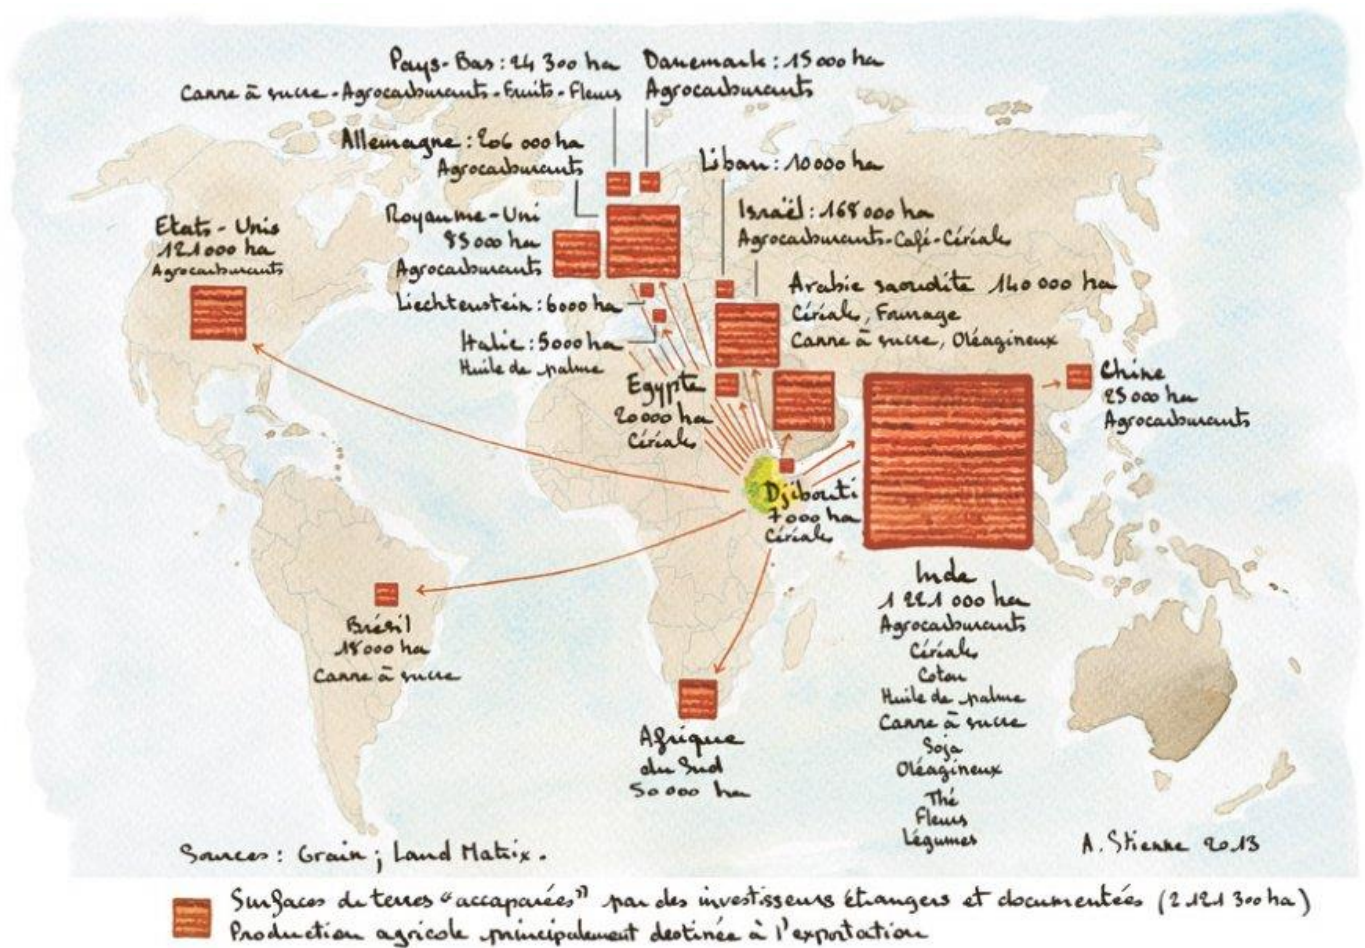 Pays-Bas : 24 300 ha
Canne à sucre - Agrocarburants - Fruits - Fleurs
Danemark : 15 000 ha
Agrocarburants
Allemagne : 206 000 ha
Agrocarburants
Liban : 10 000 ha
Royaume-Uni
85 000 ha
Agrocarburants
Israël : 168 000 ha
Agrocarburants - Café - Céréales
Etats-Unis
121 000 ha
Agrocarburants
Liechtenstein : 6 000 ha
Arabie saoudite 140 000 ha
Céréales, Fourrage
Canne à sucre, Oléagineux
Italie : 5 000 ha
Huile de palme
Egypte
20 000 ha
Céréales
Chine
25 000 ha
Agrocarburants
Djibouti
7 000 ha
Céréales
Inde
1 221 000 ha
Agrocarburants
Céréales
Coton
Huile de palme
Canne à sucre
Soja
Oléagineux
Thé
Fleurs
Légumes
Brésil
18 000 ha
Canne à sucre
Afrique
du Sud
50 000 ha
Sources : Grain ; Land Matrix.
A. Stienne 2013
Surfaces de terres "accaparées" par des investisseurs étrangers et documentées (2 121 300 ha)
Production agricole principalement destinée à l'exportation